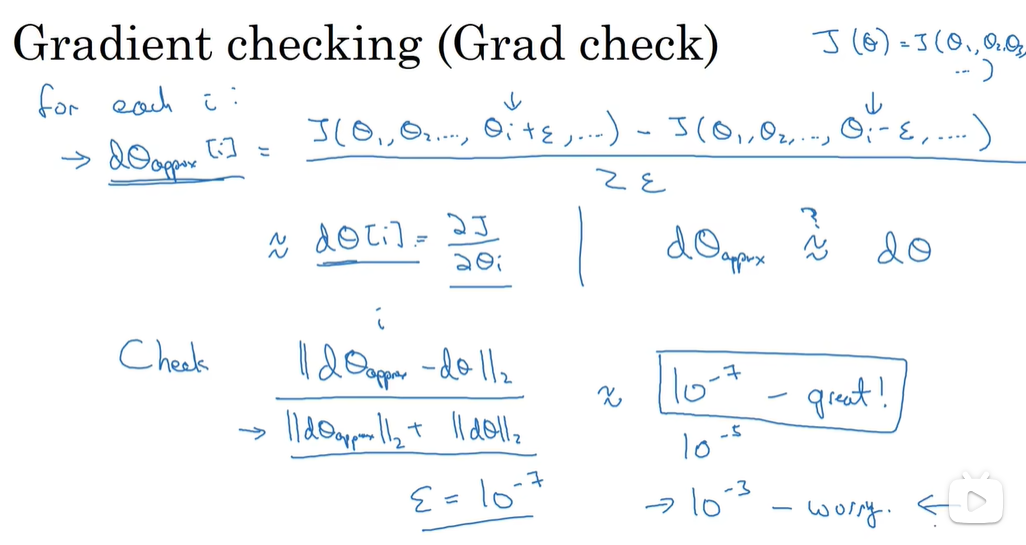 Gradient checking (Grad check)
J(θ) = J(θ₁, θ₂, θ₃, ...)
for each i:
→ dθapprox[i] = (J(θ₁, θ₂, ..., θᵢ+ε, ...) - J(θ₁, θ₂, ..., θᵢ-ε, ....)) / 2ε
≈ dθ[i] = ∂J/∂θᵢ | dθapprox ≈? dθ
i
Check ‖dθapprox - dθ‖₂ / (‖dθapprox‖₂ + ‖dθ‖₂) ≈ 10⁻⁷ - great!
10⁻⁵
ε = 10⁻⁷ → 10⁻³ - worry. ←